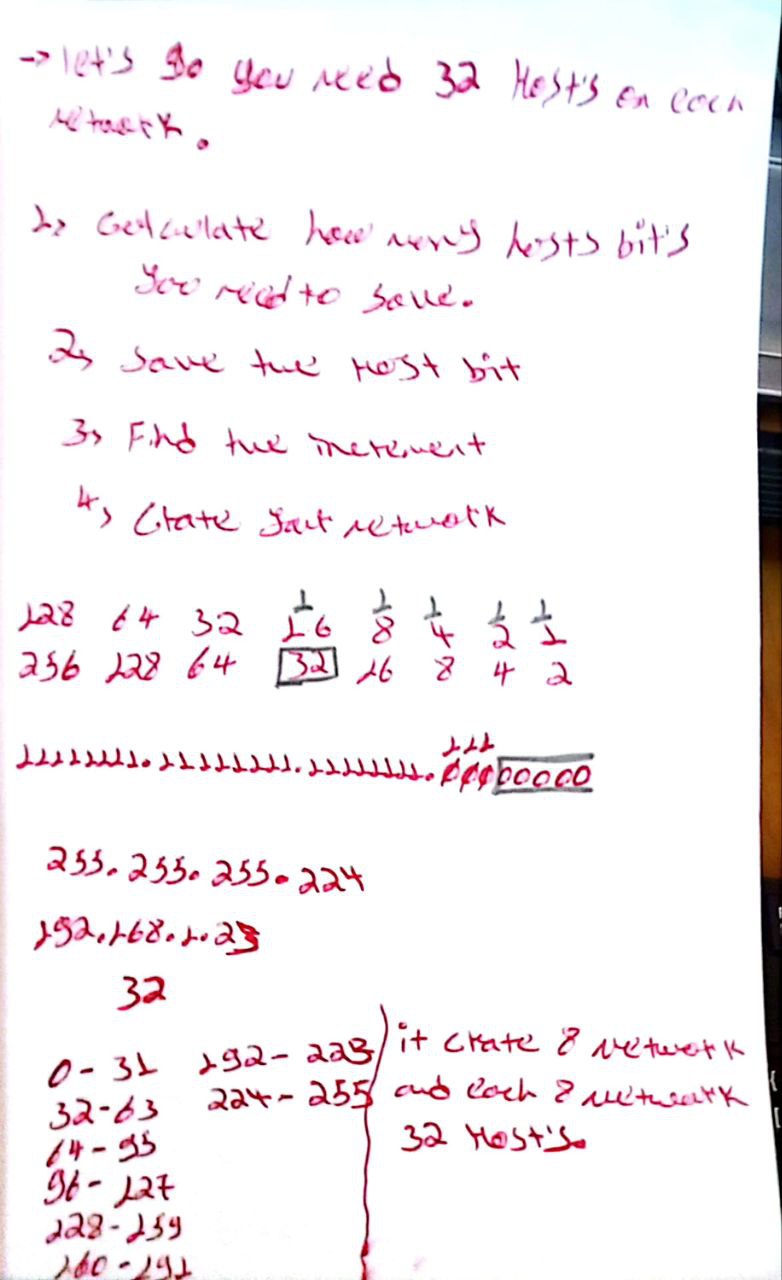 → let's go you need 32 Host's on each
network.
1, Calculate how many hosts bit's
you need to save.
2, Save the Host bit
3, Find the increment
4, Crate your network
1 1 1 1 1
128 64 32 16 8 4 2 1
256 128 64 32 16 8 4 2
111
11111111.11111111.11111111.00000000
255.255.255.224
192.168.1.23
32
0-31 192-223
32-63 224-255
64-95
96-127
128-159
160-191
it crate 8 network
and each 8 network
32 Host's.